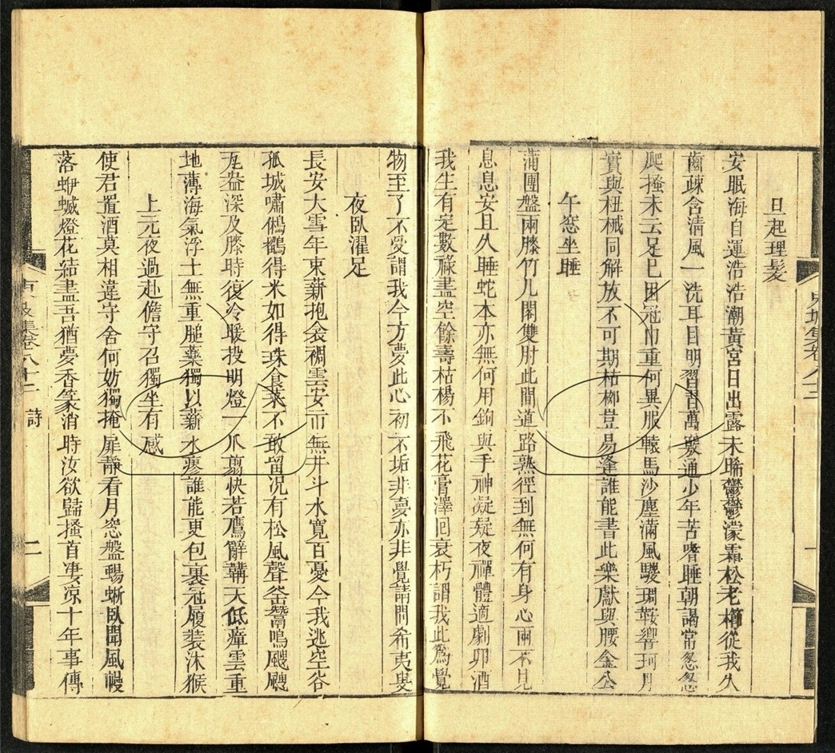 旦起理髮
安眠海自運浩浩潮黃宮日出露未晞鬱鬱濛霜松老櫛從我久
齒疎含清風一洗耳目明習習萬竅通少年苦嗜睡朝謁常怱怱
爬搔未云足已困冠巾重何異服轅馬沙塵滿風騣琱鞍響珂月
實與杻械同解放不可期枯柳豈易逢誰能書此樂獻與腰金公
午窓坐睡
蒲團盤兩膝竹几閣雙肘此間道路熟徑到無何有身心兩不見
息息安且久睡蛇本亦無何用鉤與手神凝疑夜禪體適劇卯酒
我生有定數祿盡空餘壽枯楊不飛花膏澤回衰朽謂我此為覺
物至了不受謂我今方夢此心初不垢非夢亦非覺請問希夷叟
夜臥濯足
長安大雪年束薪抱衾裯雲安市無井斗水寬百憂今我逃空谷
孤城嘯鵂鶹得米如得珠食菜不敢留況有松風聲釜鬵鳴颼颼
瓦盎深及膝時復冷暖投明燈一爪剪快若鷹辭韝天低瘴雲重
地薄海氣浮土無重膇藥獨以薪水瘳誰能更包裹冠履裝沐猴
上元夜過赴儋守召獨坐有感
使君置酒莫相違守舍何妨獨掩扉靜看月窓盤蜴蜥臥聞風幔
落蛜蝛燈花結盡吾猶夢香篆消時汝欲歸搔首凄凉十年事傳
東坡集卷八十二 詩 二